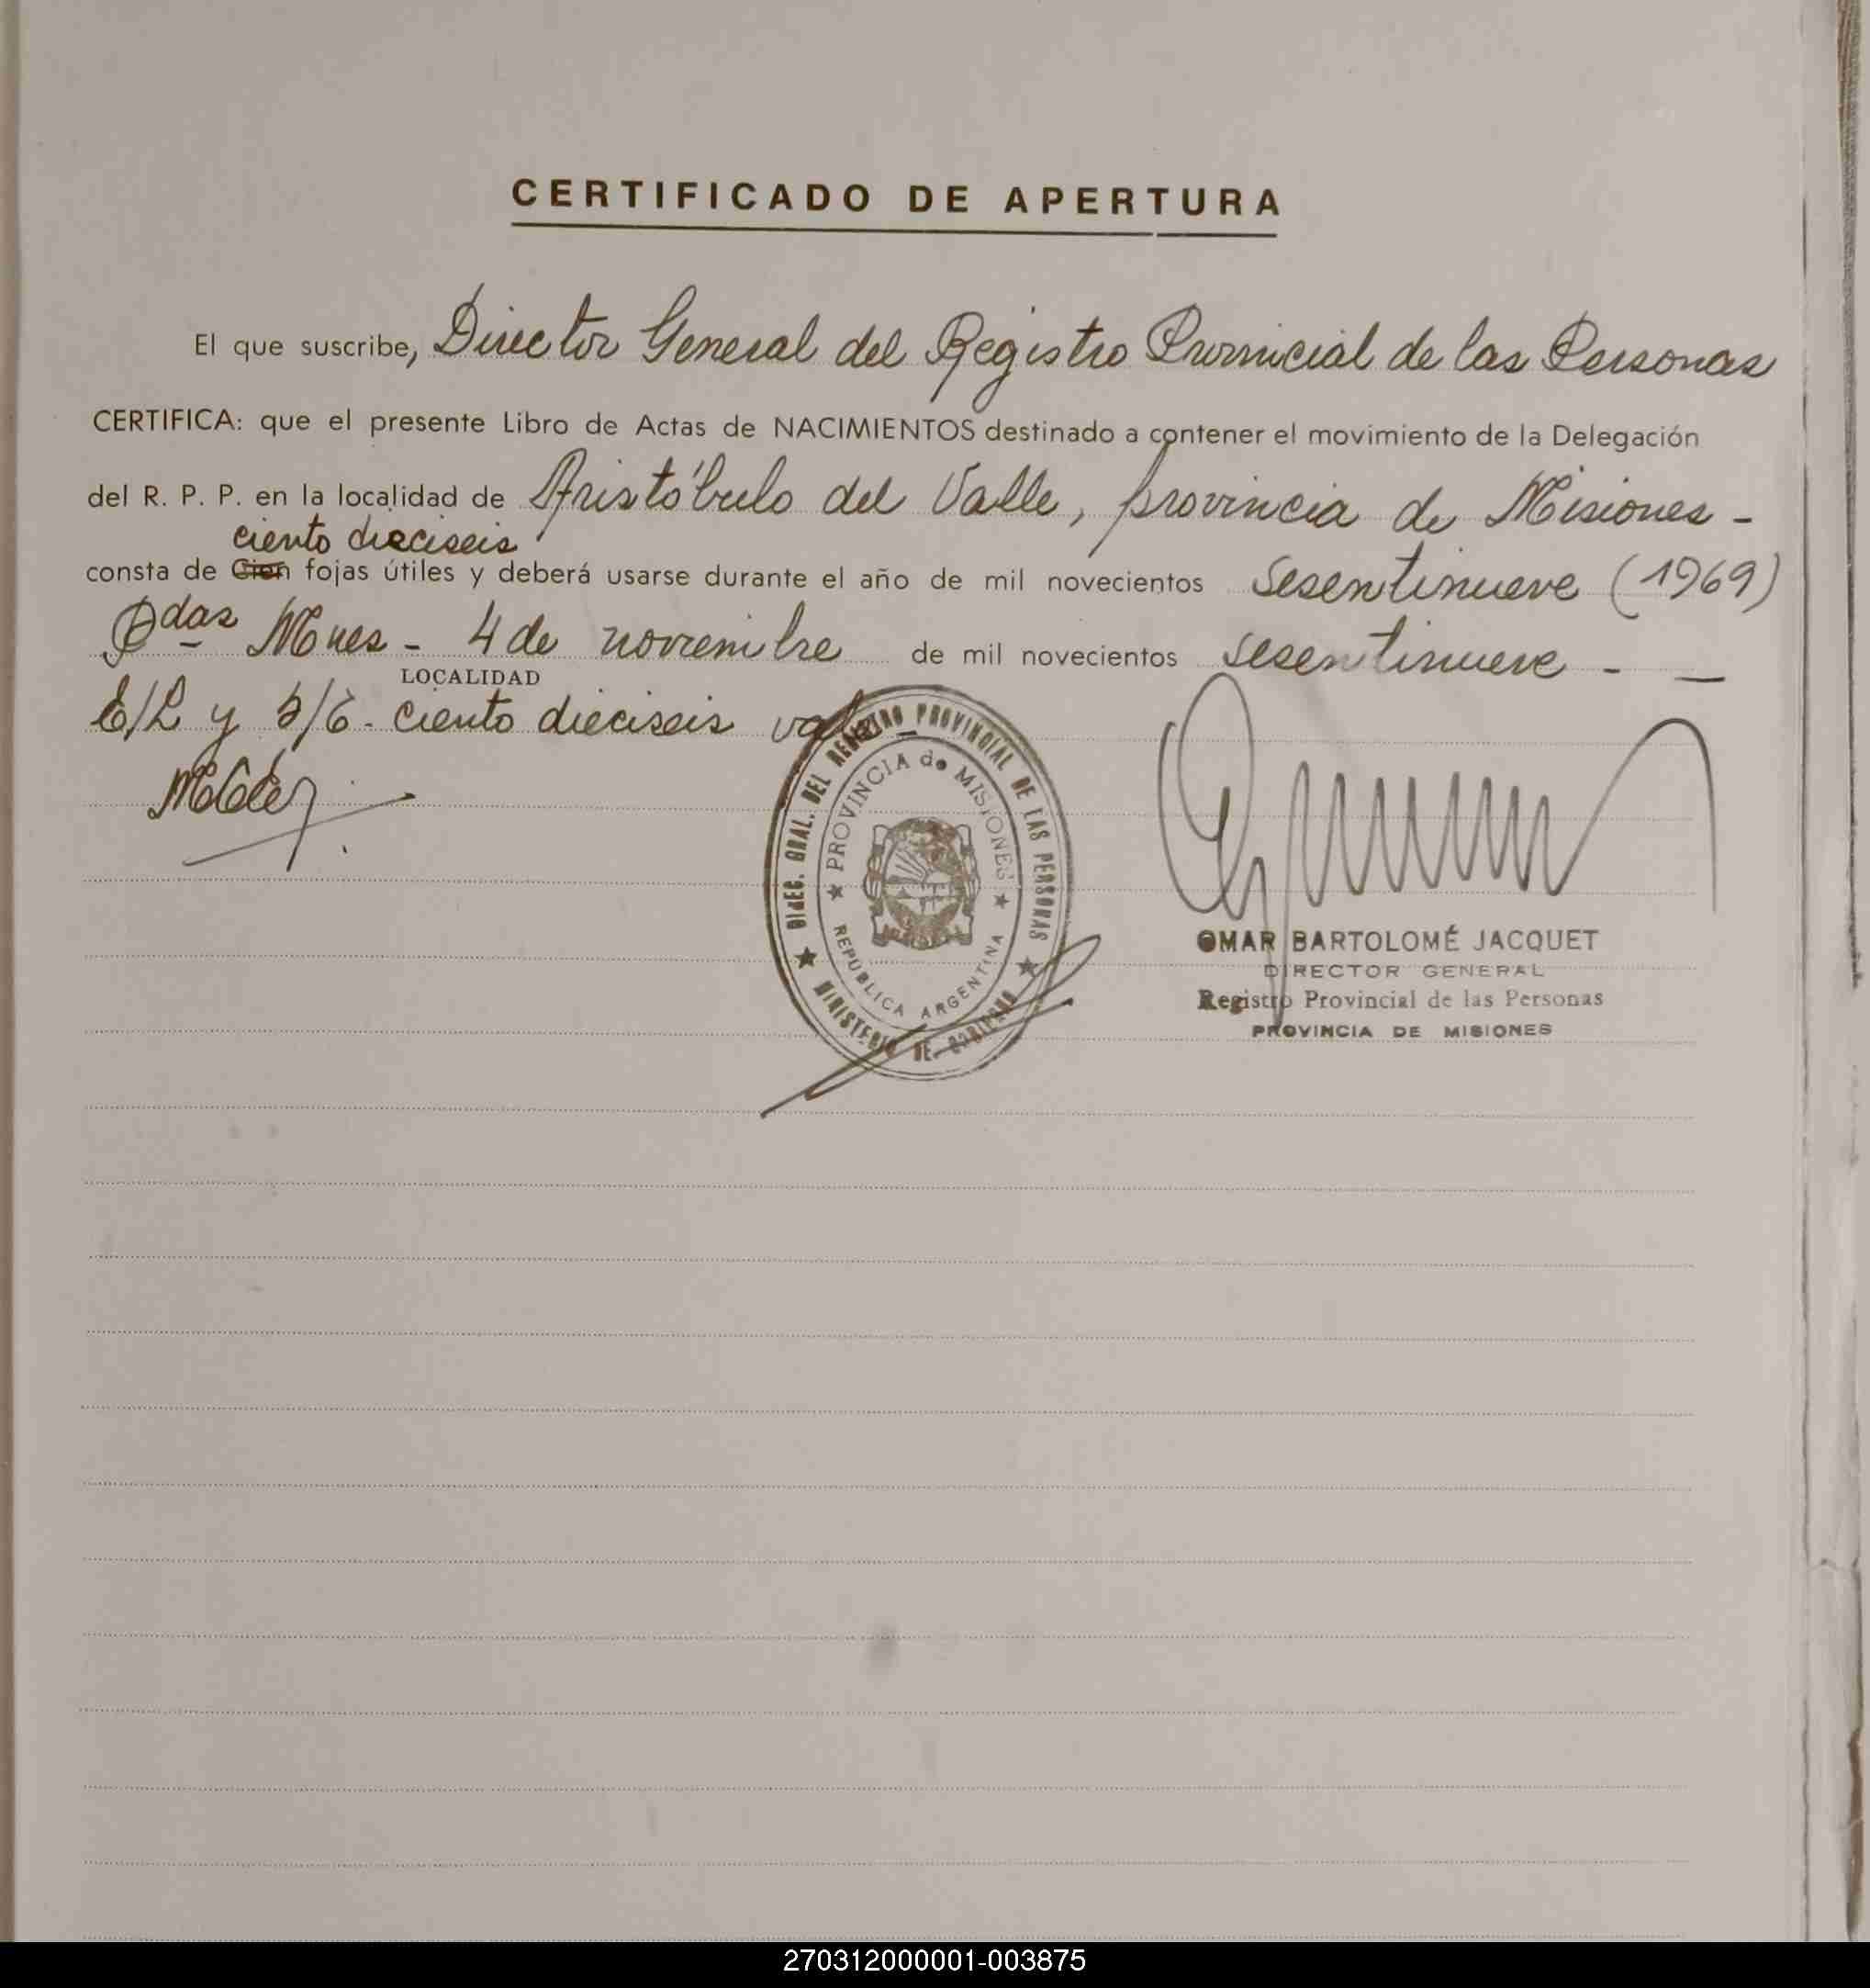 CERTIFICADO DE APERTURA
El que suscribe, Director General del Registro Provincial de las Personas
CERTIFICA: que el presente Libro de Actas de NACIMIENTOS destinado a contener el movimiento de la Delegación
del R. P. P. en la localidad de Aristóbulo del Valle, provincia de Misiones -
ciento dieciseis
consta de Cien fojas útiles y deberá usarse durante el año de mil novecientos sesentinueve (1969)
Pdas Mnes - 4 de noviembre de mil novecientos sesentinueve - —
LOCALIDAD
E/L y S/E - ciento dieciseis vale
DIREC. GRAL. DEL REGISTRO PROVINCIAL DE LAS PERSONAS
★ MINISTERIO DE GOBIERNO ★
★ PROVINCIA de MISIONES ★
REPÚBLICA ARGENTINA
OMAR BARTOLOMÉ JACQUET
DIRECTOR GENERAL
Registro Provincial de las Personas
PROVINCIA DE MISIONES
270312000001-003875